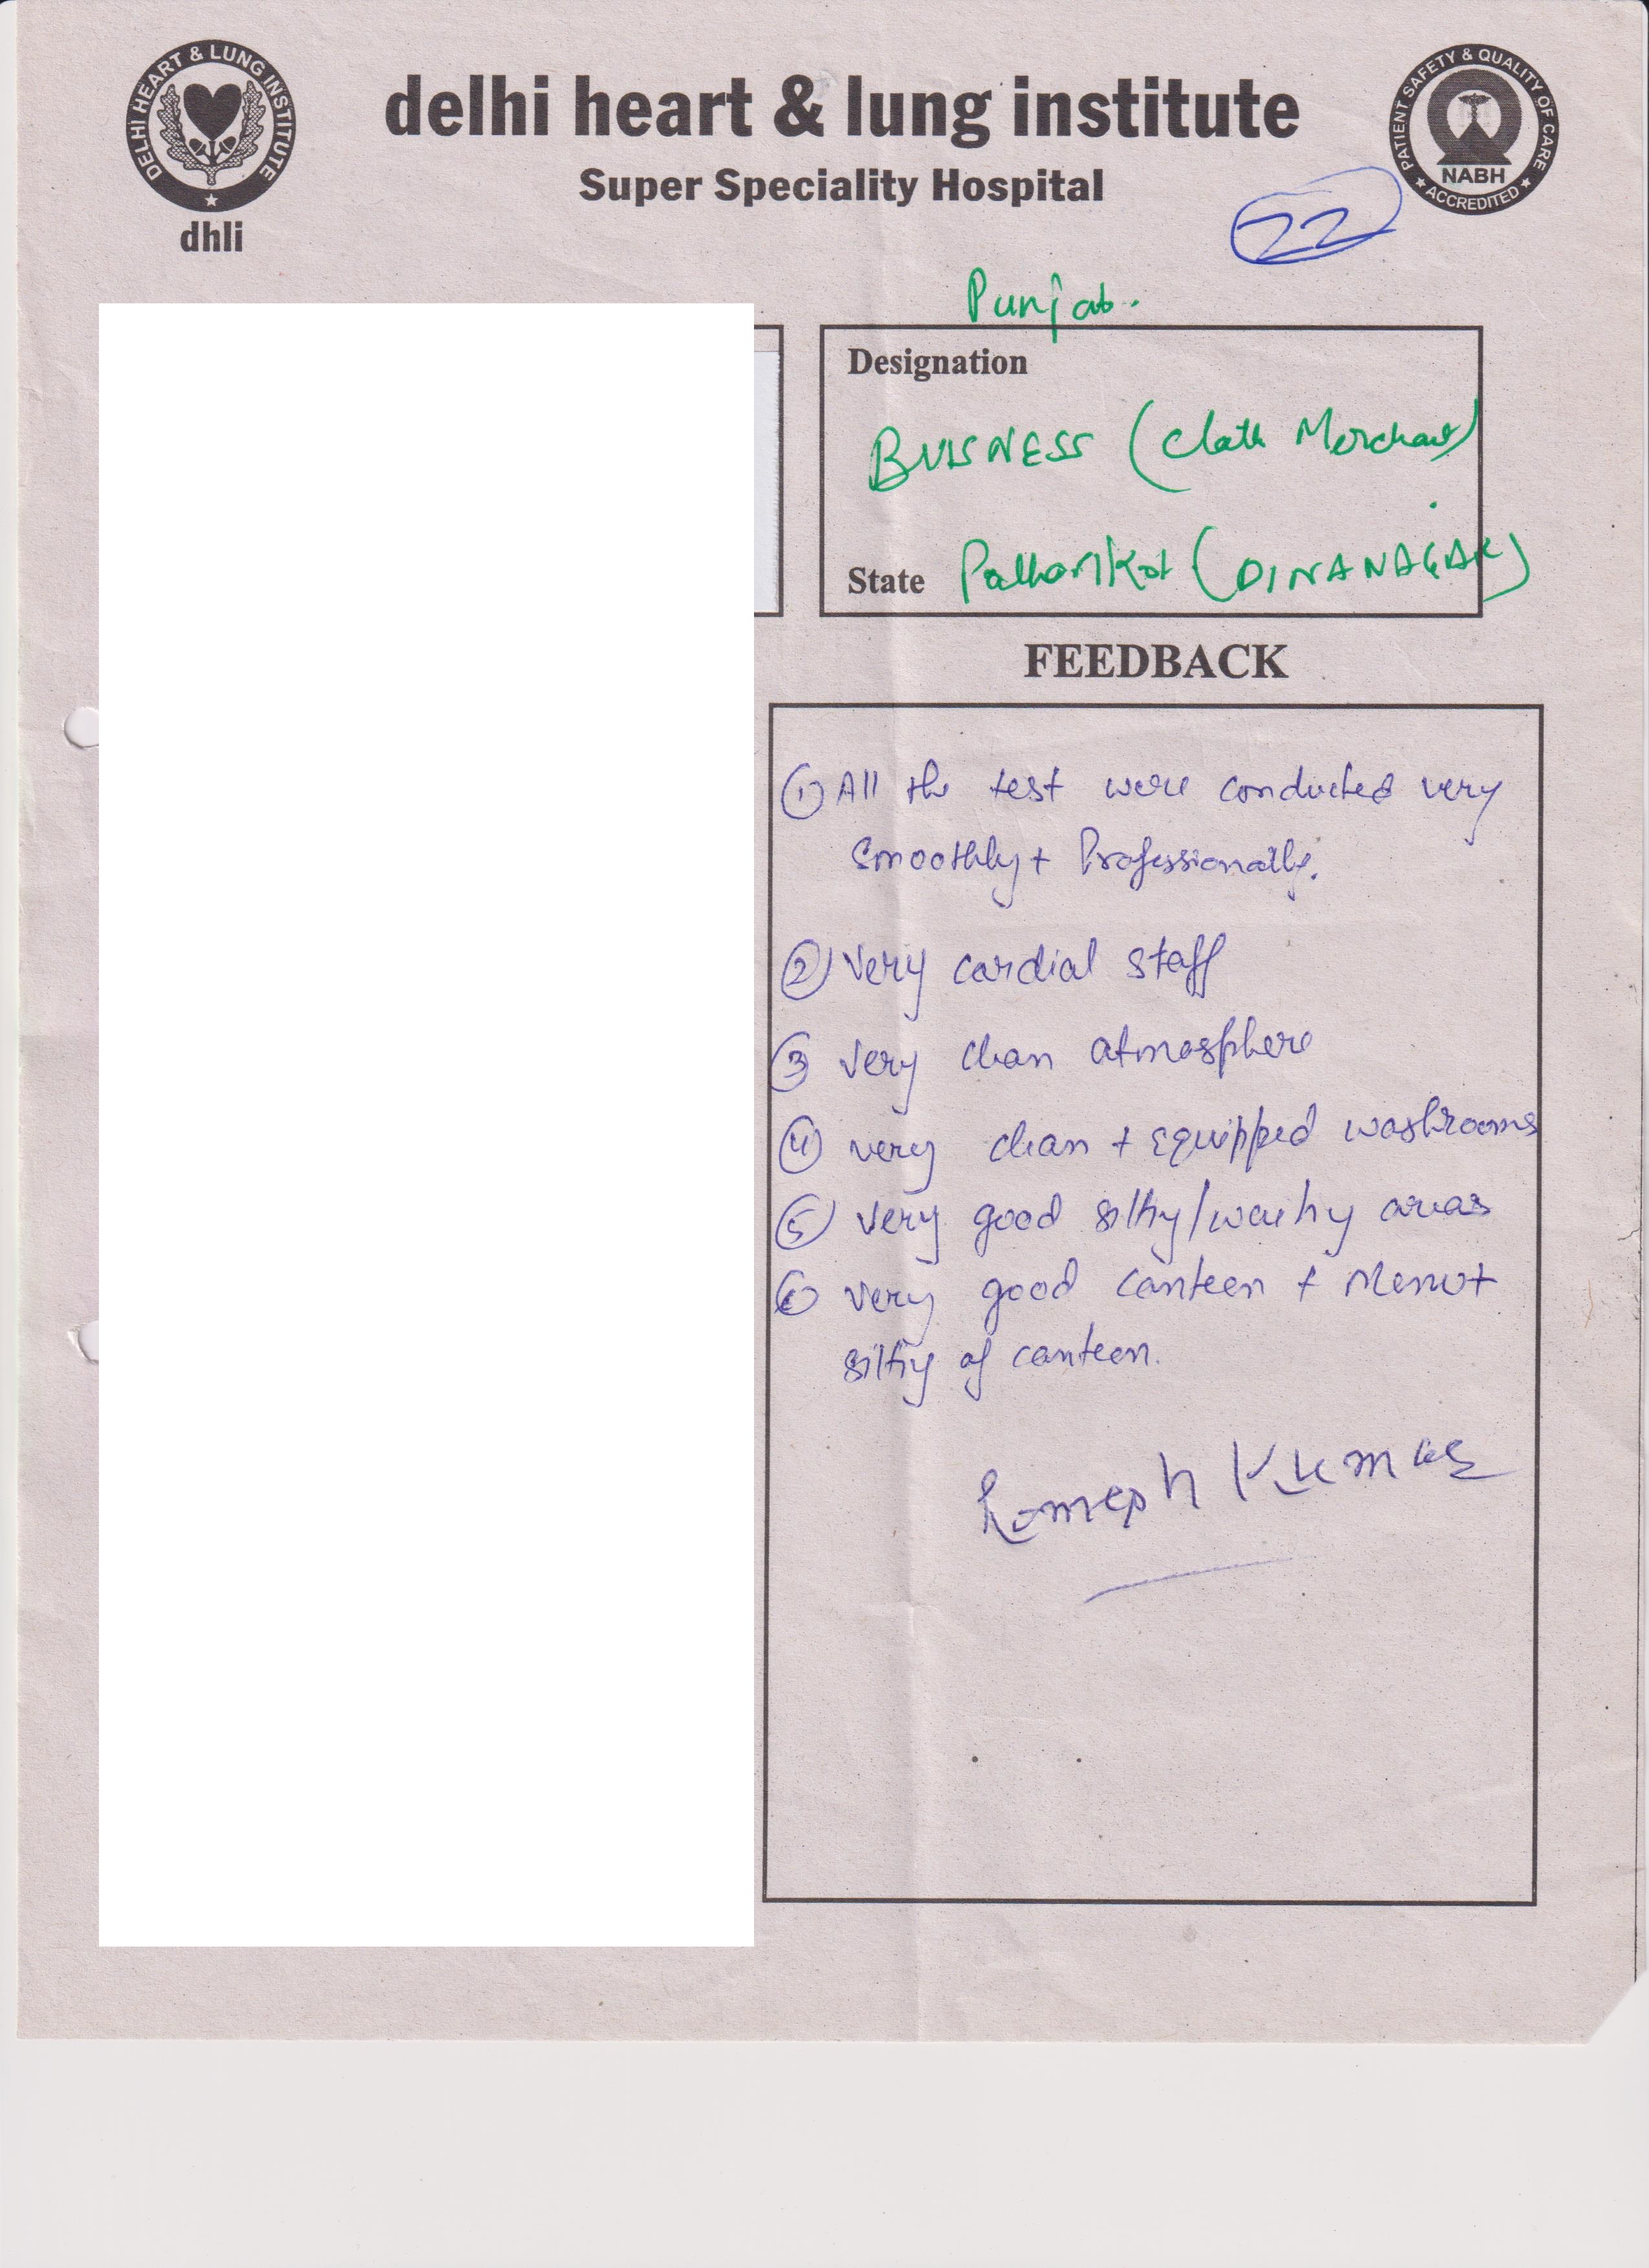 DELHI HEART & LUNG INSTITUTE
dhli
delhi heart & lung institute
Super Speciality Hospital
PATIENT SAFETY & QUALITY OF CARE
NABH
ACCREDITED
22
Punjab.
Designation
BUISNESS (Cloth Merchant)
State Pathankot (DINANAGAR)
FEEDBACK
① All the test were conducted very
Smoothly + Professionally.
② Very cordial staff
③ Very clean atmosphere
④ very clean + Equipped washrooms
⑤ Very good areas
⑥ Very good canteen + Menu +
of canteen.
Romesh Kumar